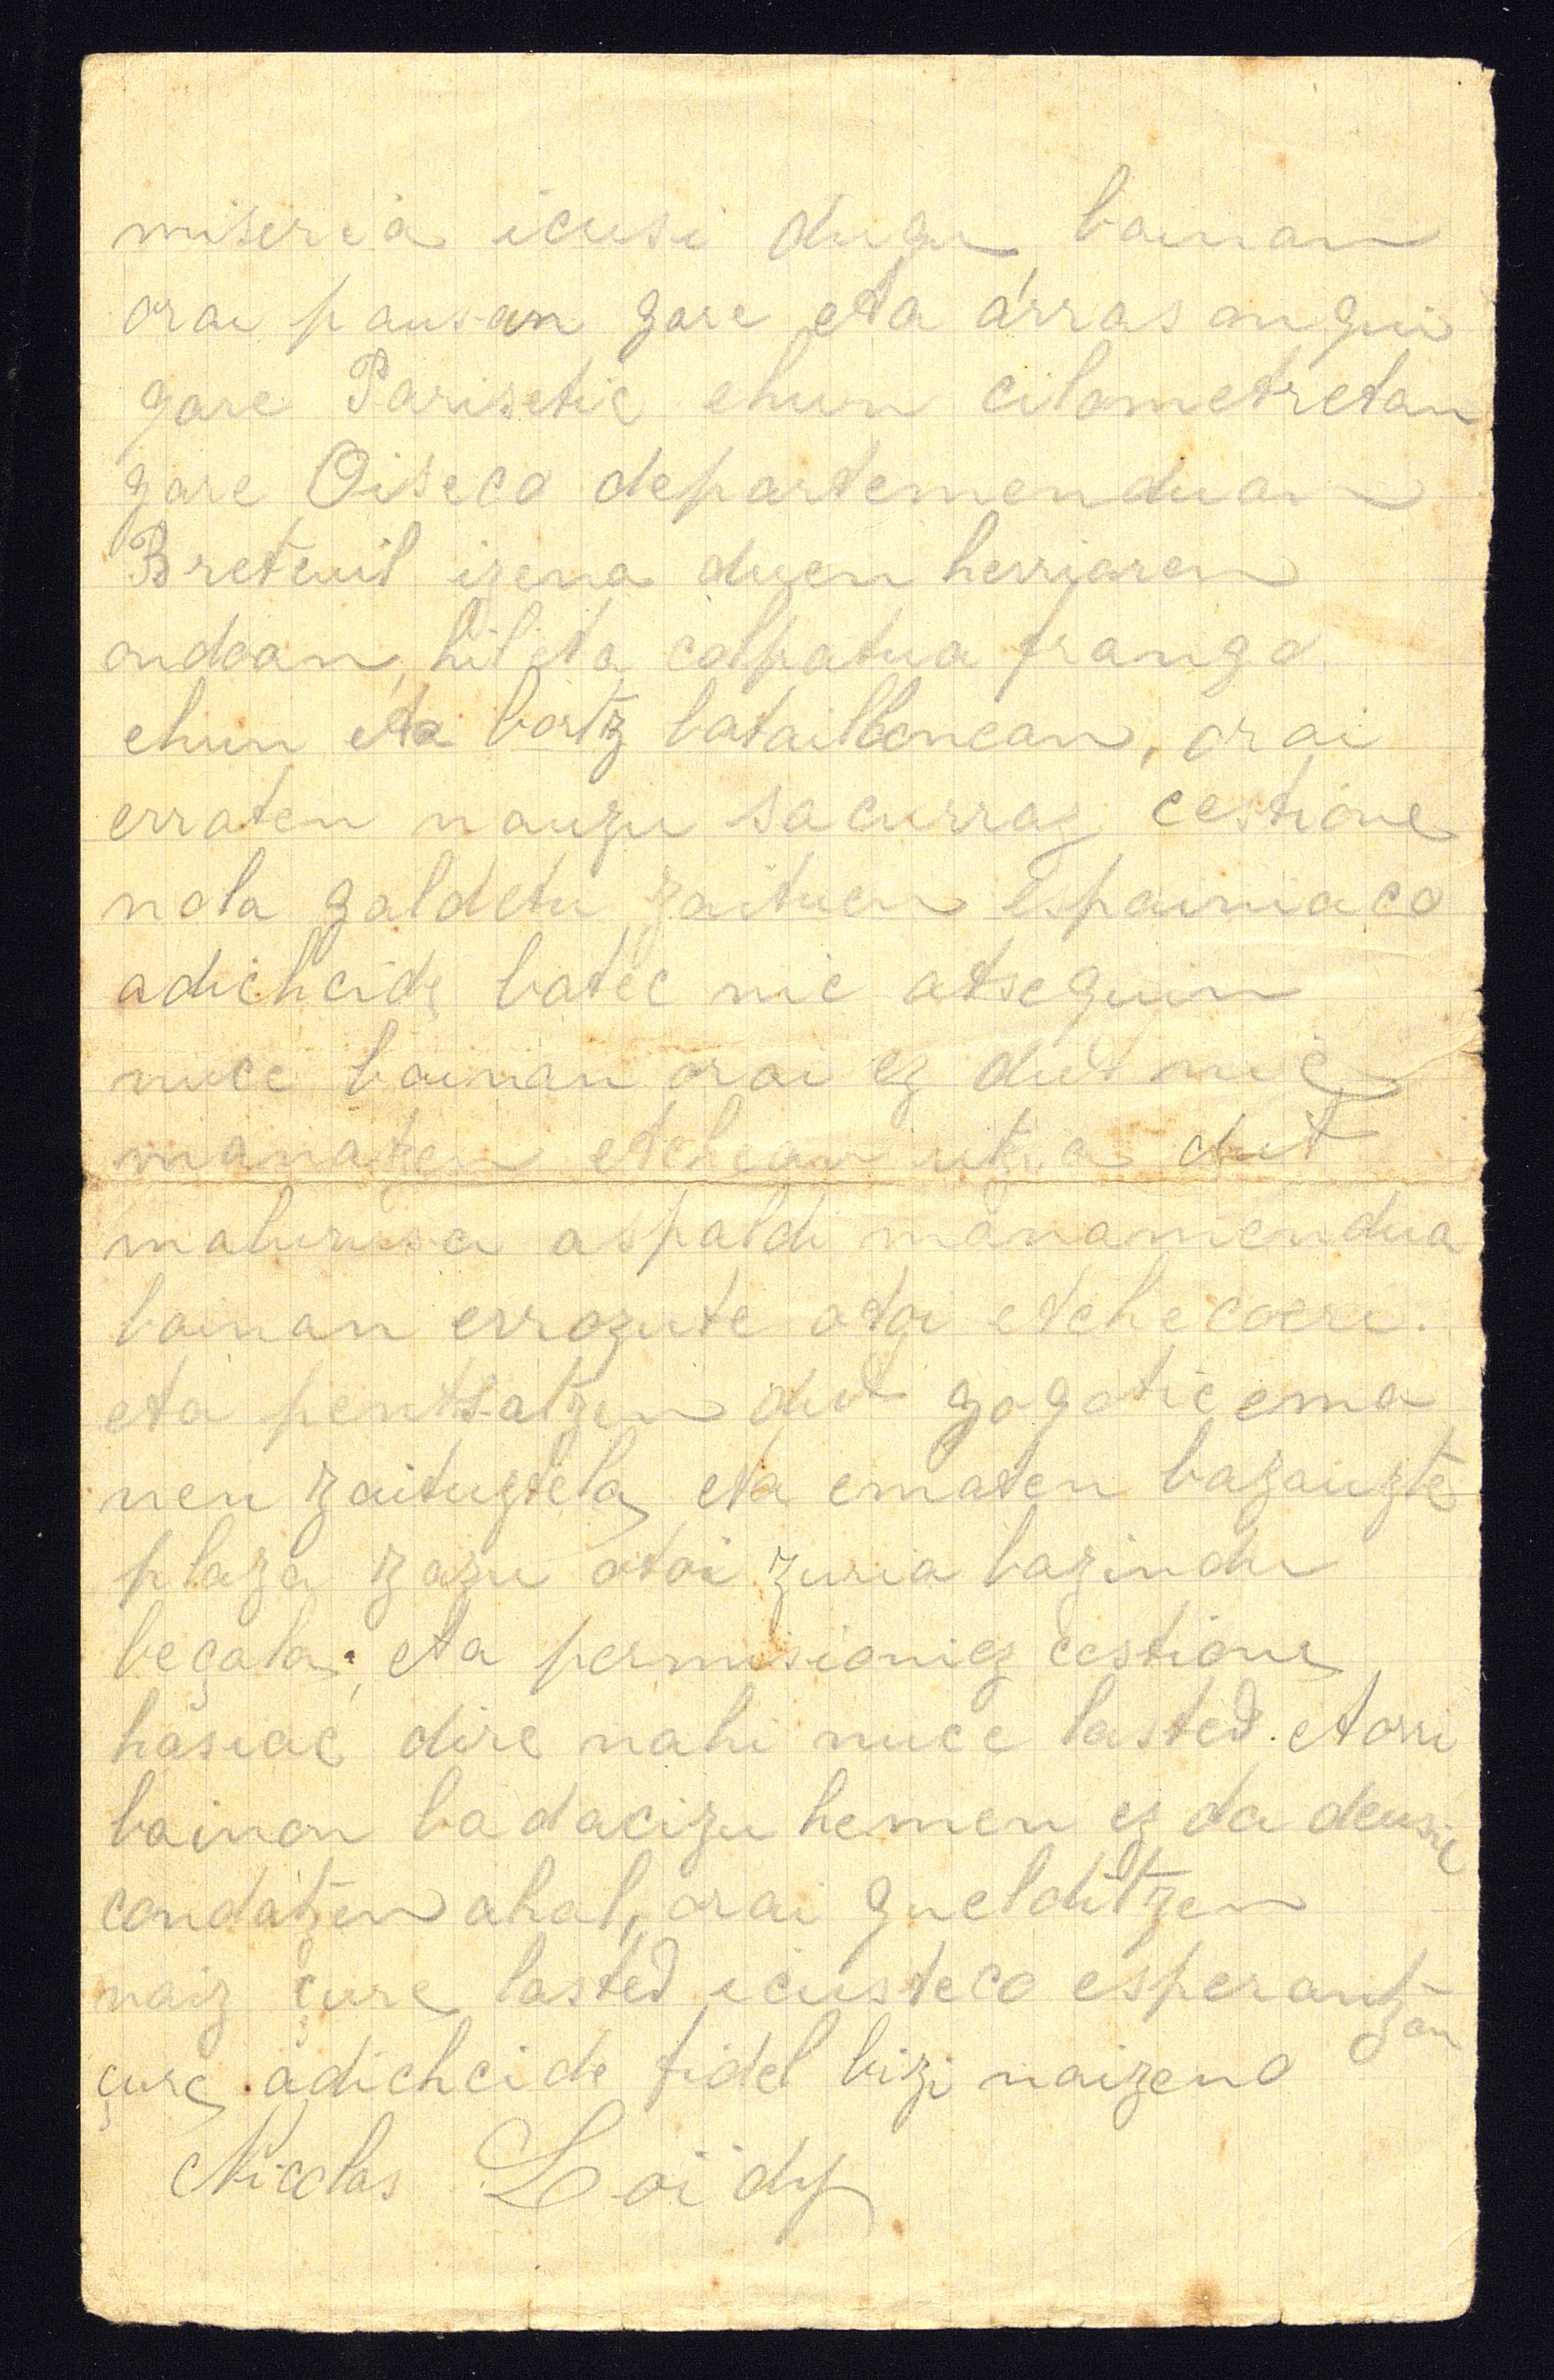 miseria icusi dugu bainan
orai pausan gare eta arras ongui
gare Parisetic ehun cilometretan
gare Oiseco departemenduan
Breteuil izena duen herriaren
ondoan, hil eta colpatua frango
ehun eta bortz bataillonean, orai
erraten nauzu sacurraz cestione
nola galdetu zaituen Espainiaco
adichcide batec nic atseguin
nuce bainan orai ez dut nic
manatzen etchean utzia dut
malurusa aspaldi manamendua
bainan errozute otoi etchecoeri.
eta pentsatzen dut gogotic ema
nen zaituztela, eta ematen bazauzte
plaza zazu otoi zuria bazindu
beçala; eta permisioniez cestione
hasiac dire nahi nuce lasted. etorri
bainon badacizu hemen ez da deusic
condatzen ahal, orai guelditzen
naiz çure lasted icusteco esperantzan
çure adichcide fidel bizi naizeno
Nicolas Loidy